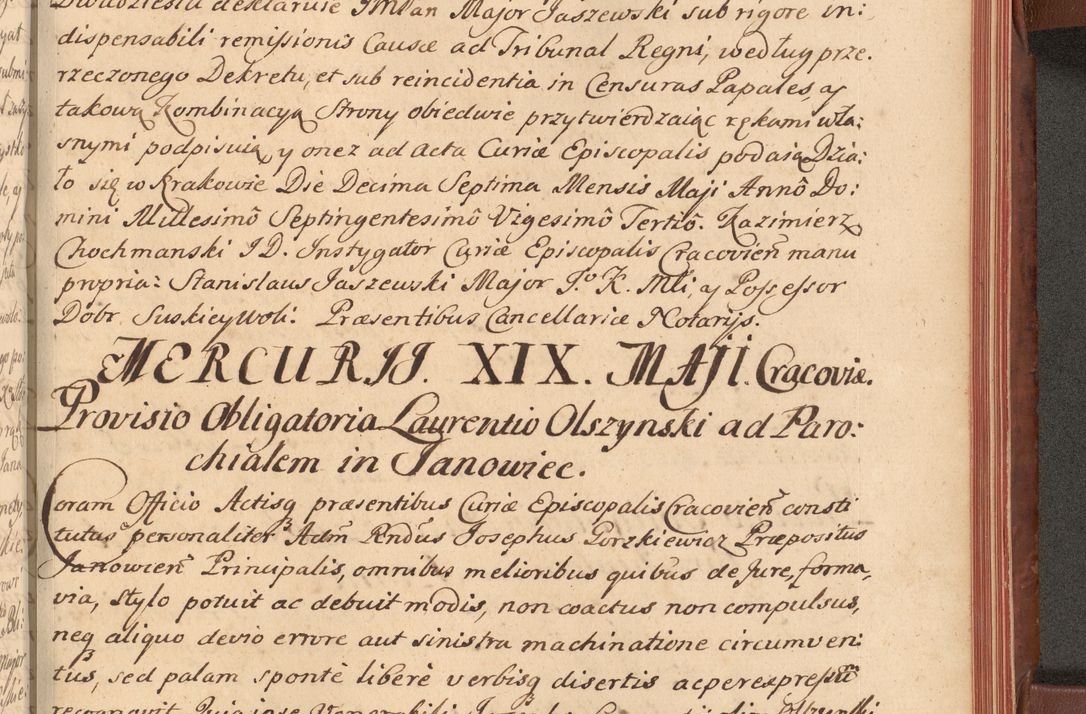 Dwadziesta deklaruie JMPan Major Jaszewski sub rigore in:
dispensabili remissionis Causæ ad Tribunal Regni, według prze.
rzeczonego Dekretu, et sub reincidentia in Censuras Papales, ay
takową Kombinacyą Strony obiedwie przytwierdzaiąc rękami wła:
snymi podpisuią, y onez ad Acta Curiæ Episcopalis podaią Dzia:
ło się w Krakowie Die Decima Septima Mensis Maji Annô Do:
mini Millesimô Septingentesimô Vigesimô Tertiô. Kazimierz
Chochmanski J D. Instygator Curiæ Episcopalis Cracovien̄ manu
propria: Stanislaus Jaszewski Major J.º K. Mći, ay Possessor
Dobr Suskiey Woli. Præsentibus Cancellariæ Notarijs.
MERCURIJ. XIX. MAJI. Cracoviæ.
Provisio Obligatoria Laurentio Olszynski ad Paro:
chialem in Janowiec.
Coram Officio Actisq præsentibus Curiæ Episcopalis Cracovien̄ consti
tutus personaliter Adm̄ Rndus Josephus Gorzkiewicz Præpositus
Janowien̄ Principalis, omnibus melioribus quibus de Jure, forma,
via, stylo potuit ac debuit modis, non coactus non compulsus,
neq aliquo devio errore aut sinistra machinatione circumven:
tus, sed palam spontè liberè verbisq disertis ac per expressum
recognovit Quia ipse Venerabili